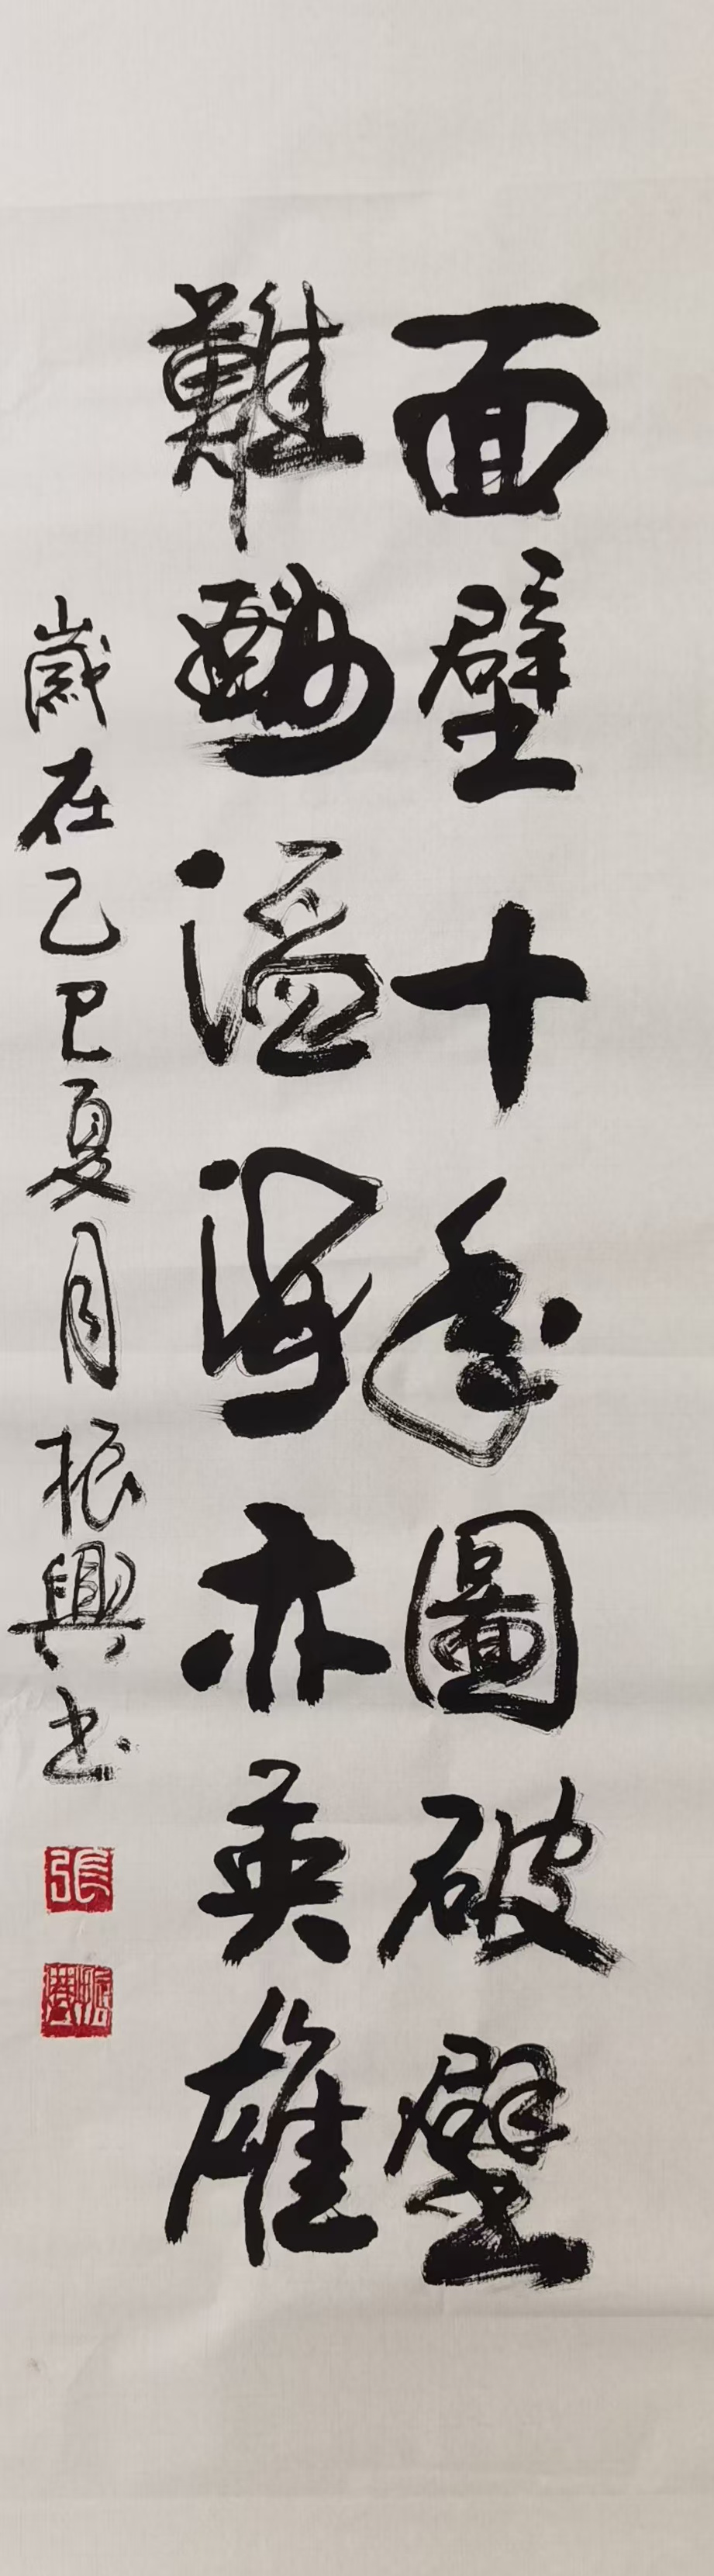 面壁十年圖破壁
難酬蹈海亦英雄
歲在乙巳夏月振興书
張